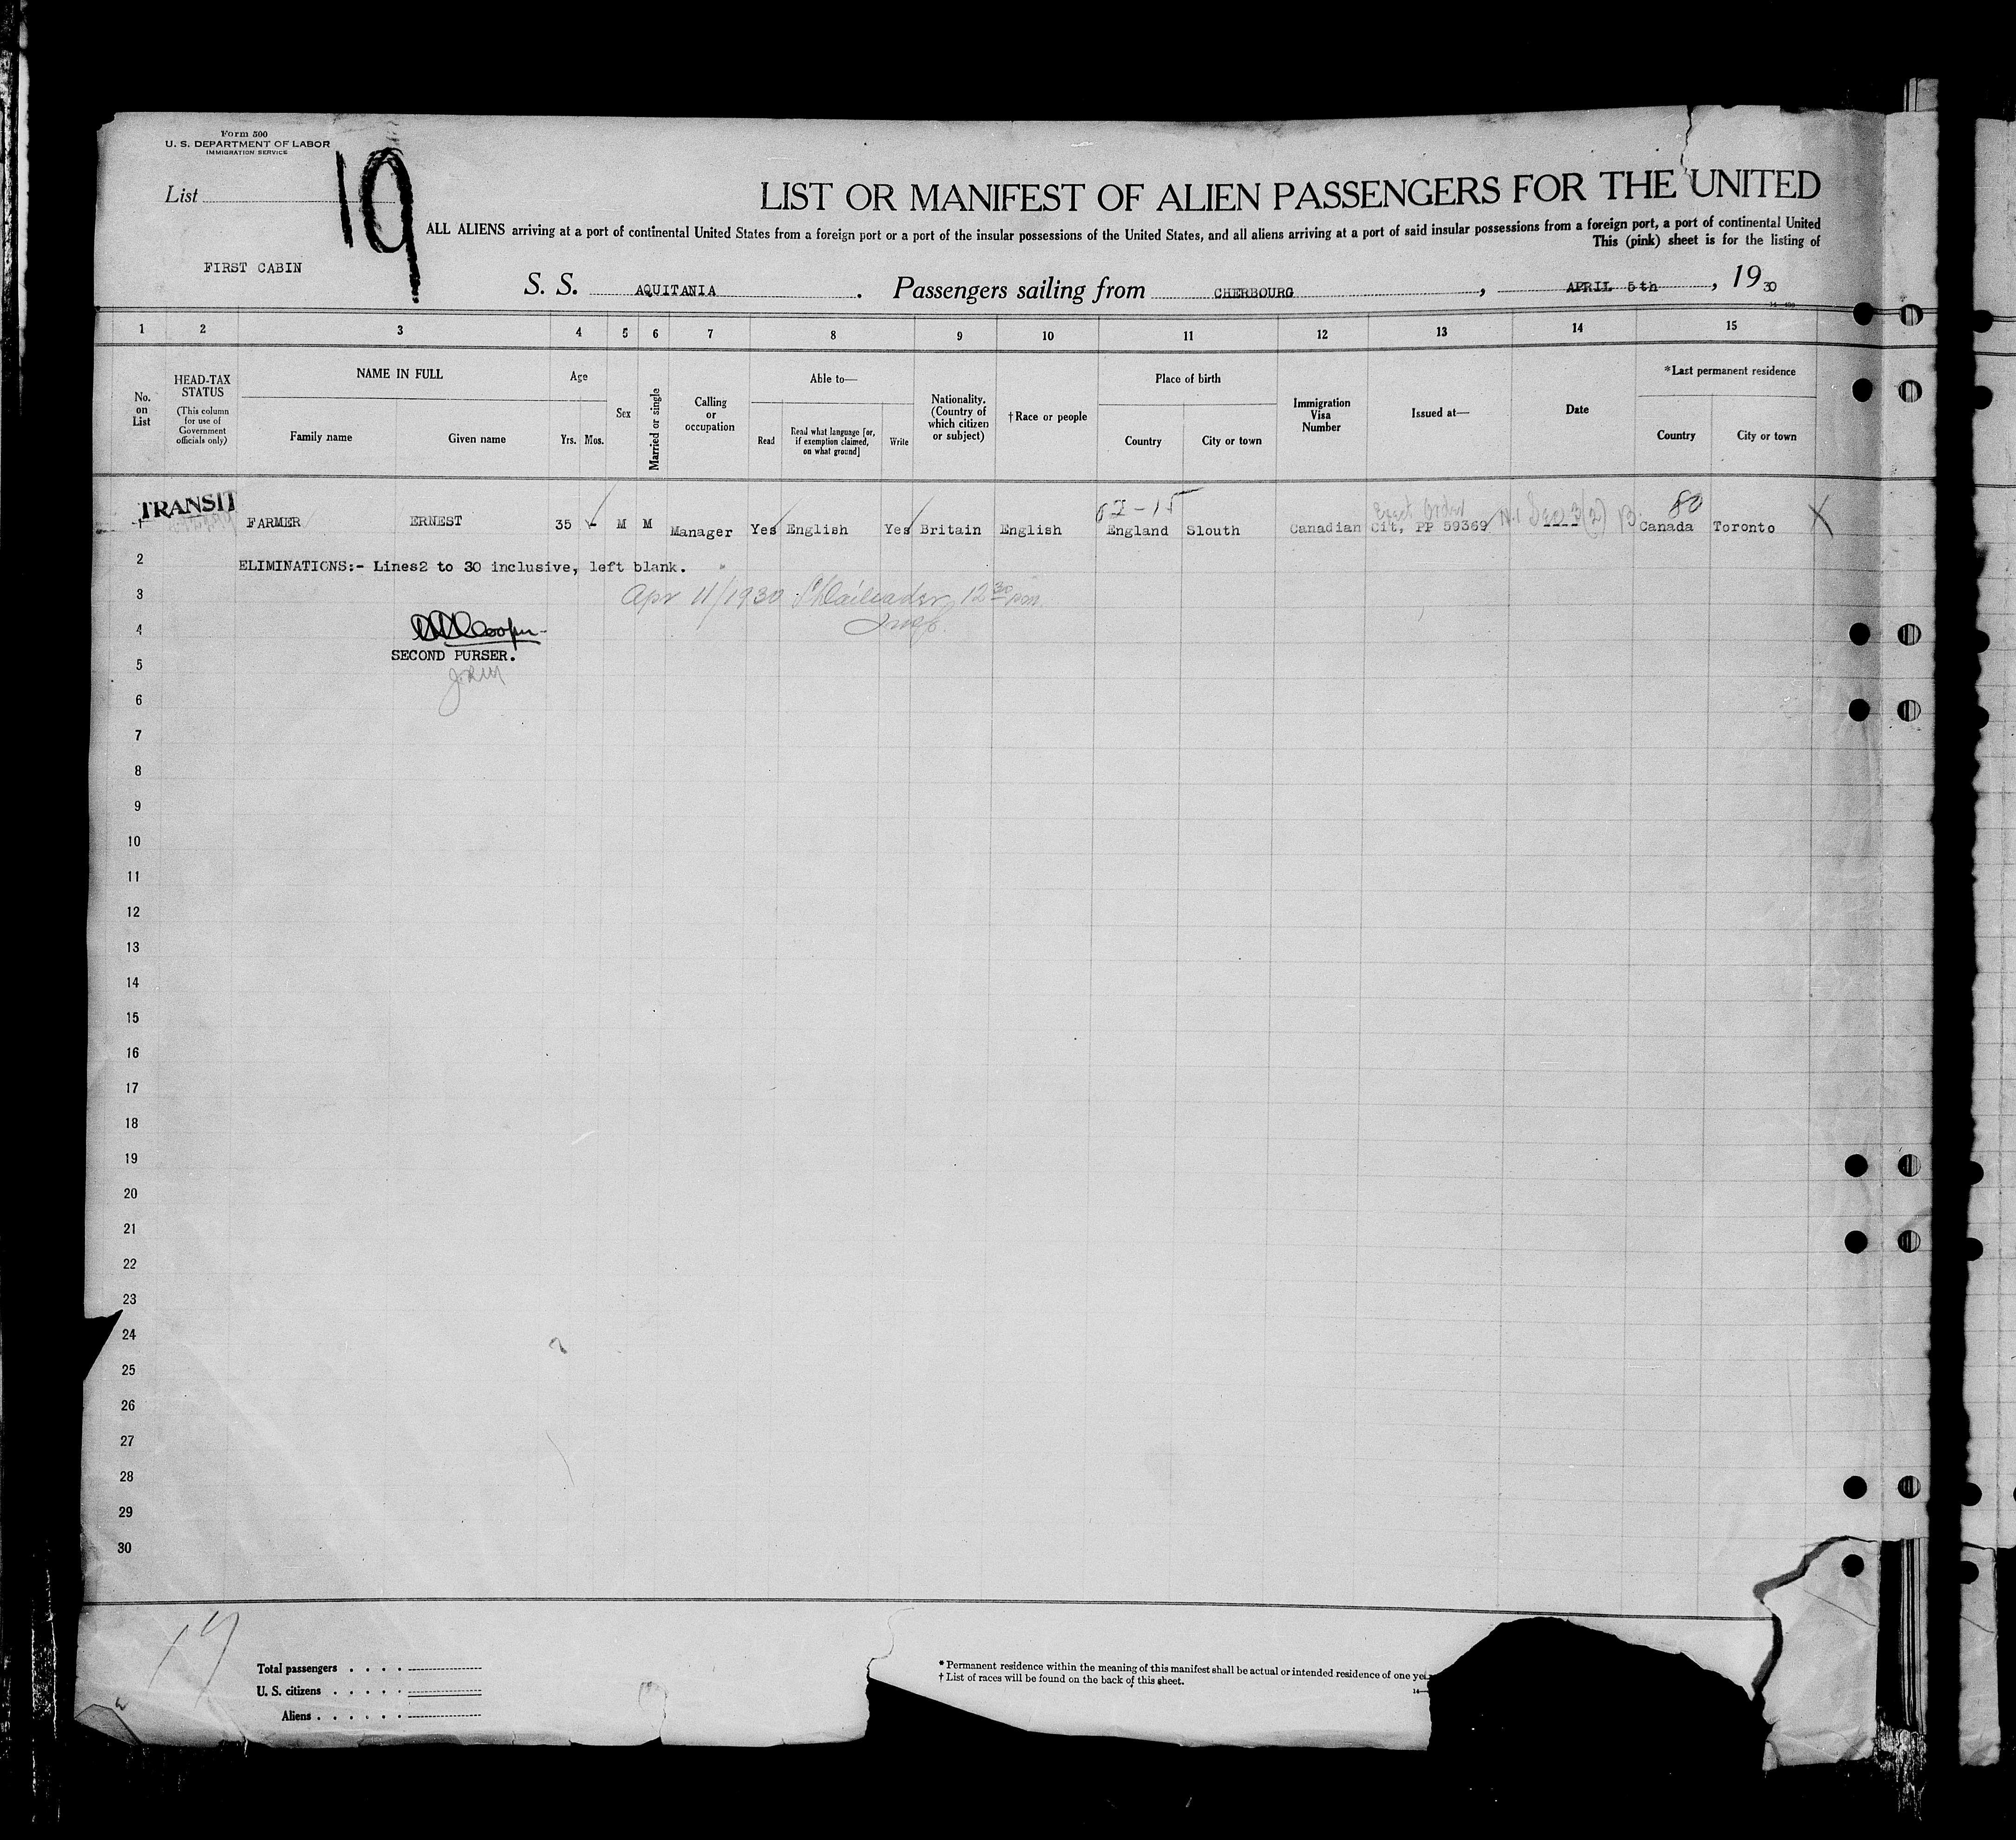 Form 500
U. S. DEPARTMENT OF LABOR
IMMIGRATION SERVICE
List
19
LIST OR MANIFEST OF ALIEN PASSENGERS FOR THE UNITED
ALL ALIENS arriving at a port of continental United States from a foreign port or a port of the insular possessions of the United States, and all aliens arriving at a port of said insular possessions from a foreign port, a port of continental United
This (pink) sheet is for the listing of
FIRST CABIN
S. S. AQUITANIA. Passengers sailing from CHERBOURG, APRIL 5th, 1930
1 2 3 4 5 6 7 8 9 10 11 12 13 14 15
No. on List
HEAD-TAX STATUS (This column for use of Government officials only)
NAME IN FULL
Family name Given name
Age
Yrs. Mos.
Sex
Married or single
Calling or occupation
Able to—
Read
Read what language [or, if exemption claimed, on what ground]
Write
Nationality. (Country of which citizen or subject)
†Race or people
Place of birth
Country City or town
Immigration Visa Number
Issued at—
Date
*Last permanent residence
Country City or town
TRANSIT
1 FARMER ERNEST 35 - M M Manager Yes English Yes Britain English England Slouth Canadian Cit, PP 59369 Canada Toronto
80
2
ELIMINATIONS:- Lines2 to 30 inclusive, left blank.
3
Apr 11/1930 12 30 pm
4
Cooper
SECOND PURSER.
5
6
7
8
9
10
11
12
13
14
15
16
17
18
19
20
21
22
23
24
25
26
27
28
29
30
19
Total passengers
U. S. citizens
Aliens
* Permanent residence within the meaning of this manifest shall be actual or intended residence of one
† List of races will be found on the back of this sheet.